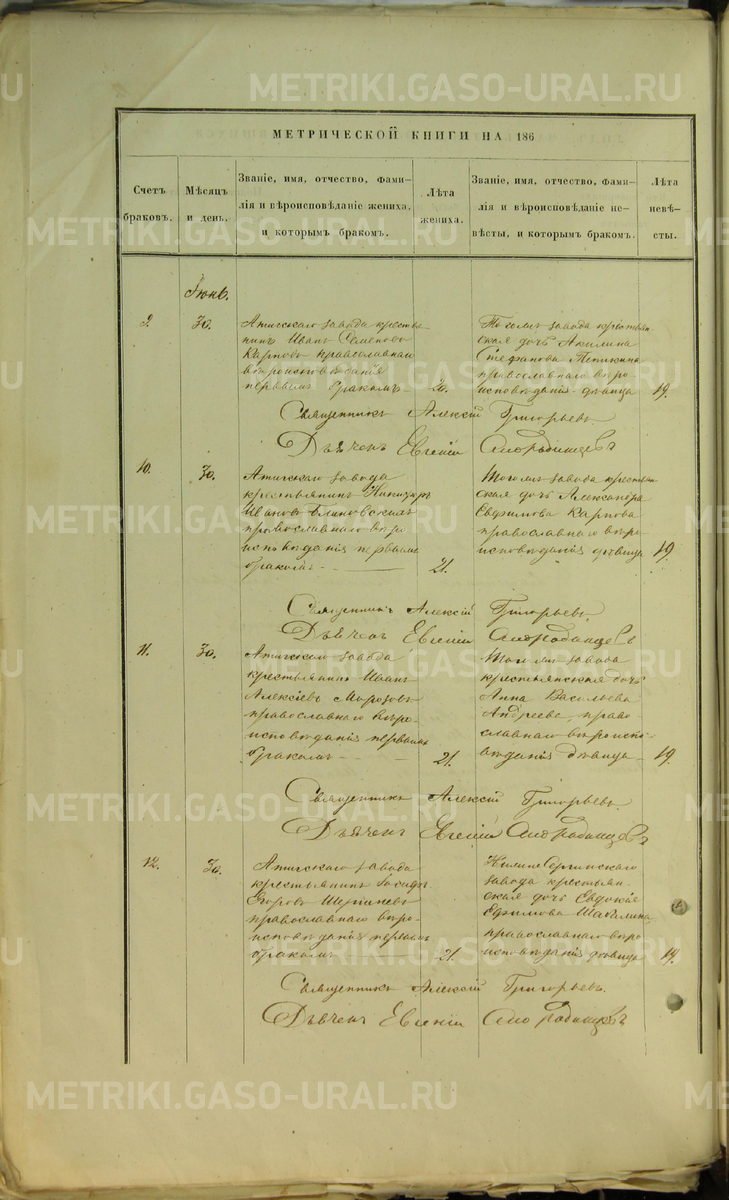 METRIKI.GASO-URAL.RU
МЕТРИЧЕСКОЙ КНИГИ НА 186
Счетъ браковъ.
Мѣсяцъ и день.
Званіе, имя, отчество, фами-
лія и вѣроисповѣданіе жениха,
и которымъ бракомъ.
Лѣта жениха.
Званіе, имя, отчество, фами-
лія и вѣроисповѣданіе не-
вѣсты, и которымъ бракомъ.
Лѣта невѣ-
сты.
Іюнь.
9.
30.
Атигскаго завода крестья-
нинъ Иванъ Семеновъ
Карповъ православнаго
вѣроисповѣданія
первымъ бракомъ
20.
Того же завода крестьян-
ская дочь Акилина
Стефанова
православнаго вѣро-
исповѣданія дѣвица
19.
Священникъ Алексій Григорьевъ
Дьячекъ Евгеній
10.
30.
Атигскаго завода
крестьянинъ
Ивановъ
православнаго вѣро-
исповѣданія первымъ
бракомъ
21.
Того же завода крестьян-
ская дочь Александра
Евфимова Карпова
православнаго вѣро-
исповѣданія дѣвица
19.
Священникъ Алексій Григорьевъ
Дьячекъ Евгеній
11.
30.
Атигскаго завода
крестьянинъ Иванъ
Алексіевъ Морозовъ
православнаго вѣро-
исповѣданія первымъ
бракомъ
21.
Того же завода
крестьянская дочь
Анна Васильева
Андреева, право-
славнаго вѣроиспо-
вѣданія дѣвица
19.
Священникъ Алексій Григорьевъ.
Дьячекъ Евгеній
12.
30.
Атигскаго завода
крестьянинъ Іосифъ
Егоровъ
православнаго вѣро-
исповѣданія первымъ
бракомъ
21.
Нижнесергинскаго
завода крестьян-
ская дочь Евдокія
Ефимова Шабалина
православнаго вѣро-
исповѣданія дѣвица
19.
Священникъ Алексій Григорьевъ.
Дьячекъ Евгеній